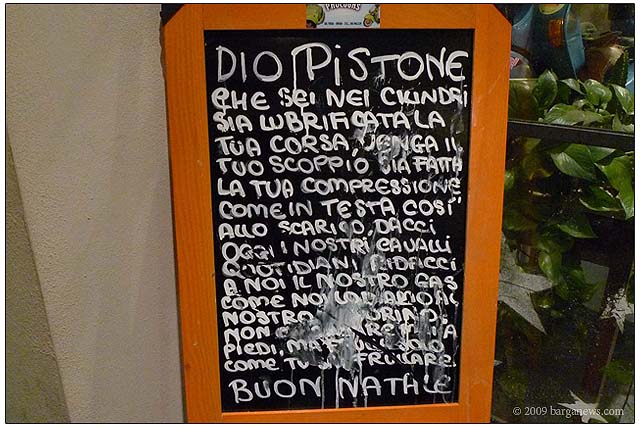 DIO PISTONE
CHE SEI NEI CILINDRI
SIA LUBRIFICATA LA
TUA CORSA, VENGA IL
TUO SCOPPIO SIA FATTA
LA TUA COMPRESSIONE
COME IN TESTA COSÍ
ALLO SCARICO, DACCI
OGGI I NOSTRI CAVALLI
QUOTIDIANI, RIDACCI
A NOI IL NOSTRO GAS
COME NOI LO DIAMO AL
NOSTRO
NON A
PIEDI, MA
COME TU FRULLARE.
BUON NATALE
© 2009 barganews.com